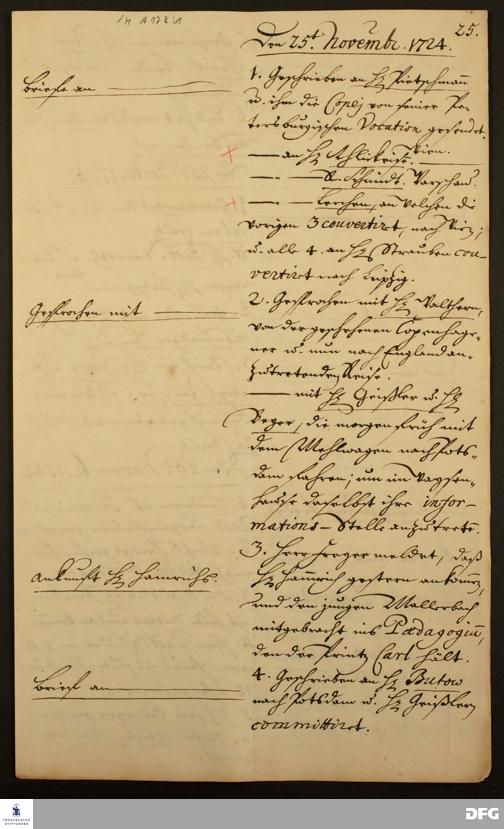 25.
Den 25t. Novembr. 1724.
Briefe an
1. Geschrieben an H. Pietschmann
u. ihm die Copej von seiner Pe-
tersburgischen Vocation gesendet.
— an H. Wien.
— " — R. Schmidt. Warschau.
— " — Lerchen, an welchen die
vorigen 3 couvertirt, nach Wien;
u. alle 4. an H. Strauben cou-
vertirt nach Leipzig.
Gesprochen mit
2. Gesprochen mit H. Walthern,
von der geschehenen Copenhage-
ner u. nun nach England an-
zutretenden Reise.
— mit H. Geißler u. H.
Beyer, die morgen früh mit
dem Mehlwagen nach Pots-
dam fahren; um im Waysen-
hause daselbst ihre infor-
mations-Stelle anzutreten.
Ankunft H. Hamrichs.
3. Herr Freyer meldet, daß
H. Hamrich gestern ankommen,
und den jungen Wallerbach
mitgebracht ins Pædagogium,
den der Printz Carl hält.
Brief an
4. Geschrieben an H. Butow
nach Potsdam u. H. Geißlern
committiret.
FRANCKESCHE
STIFTUNGEN
DFG